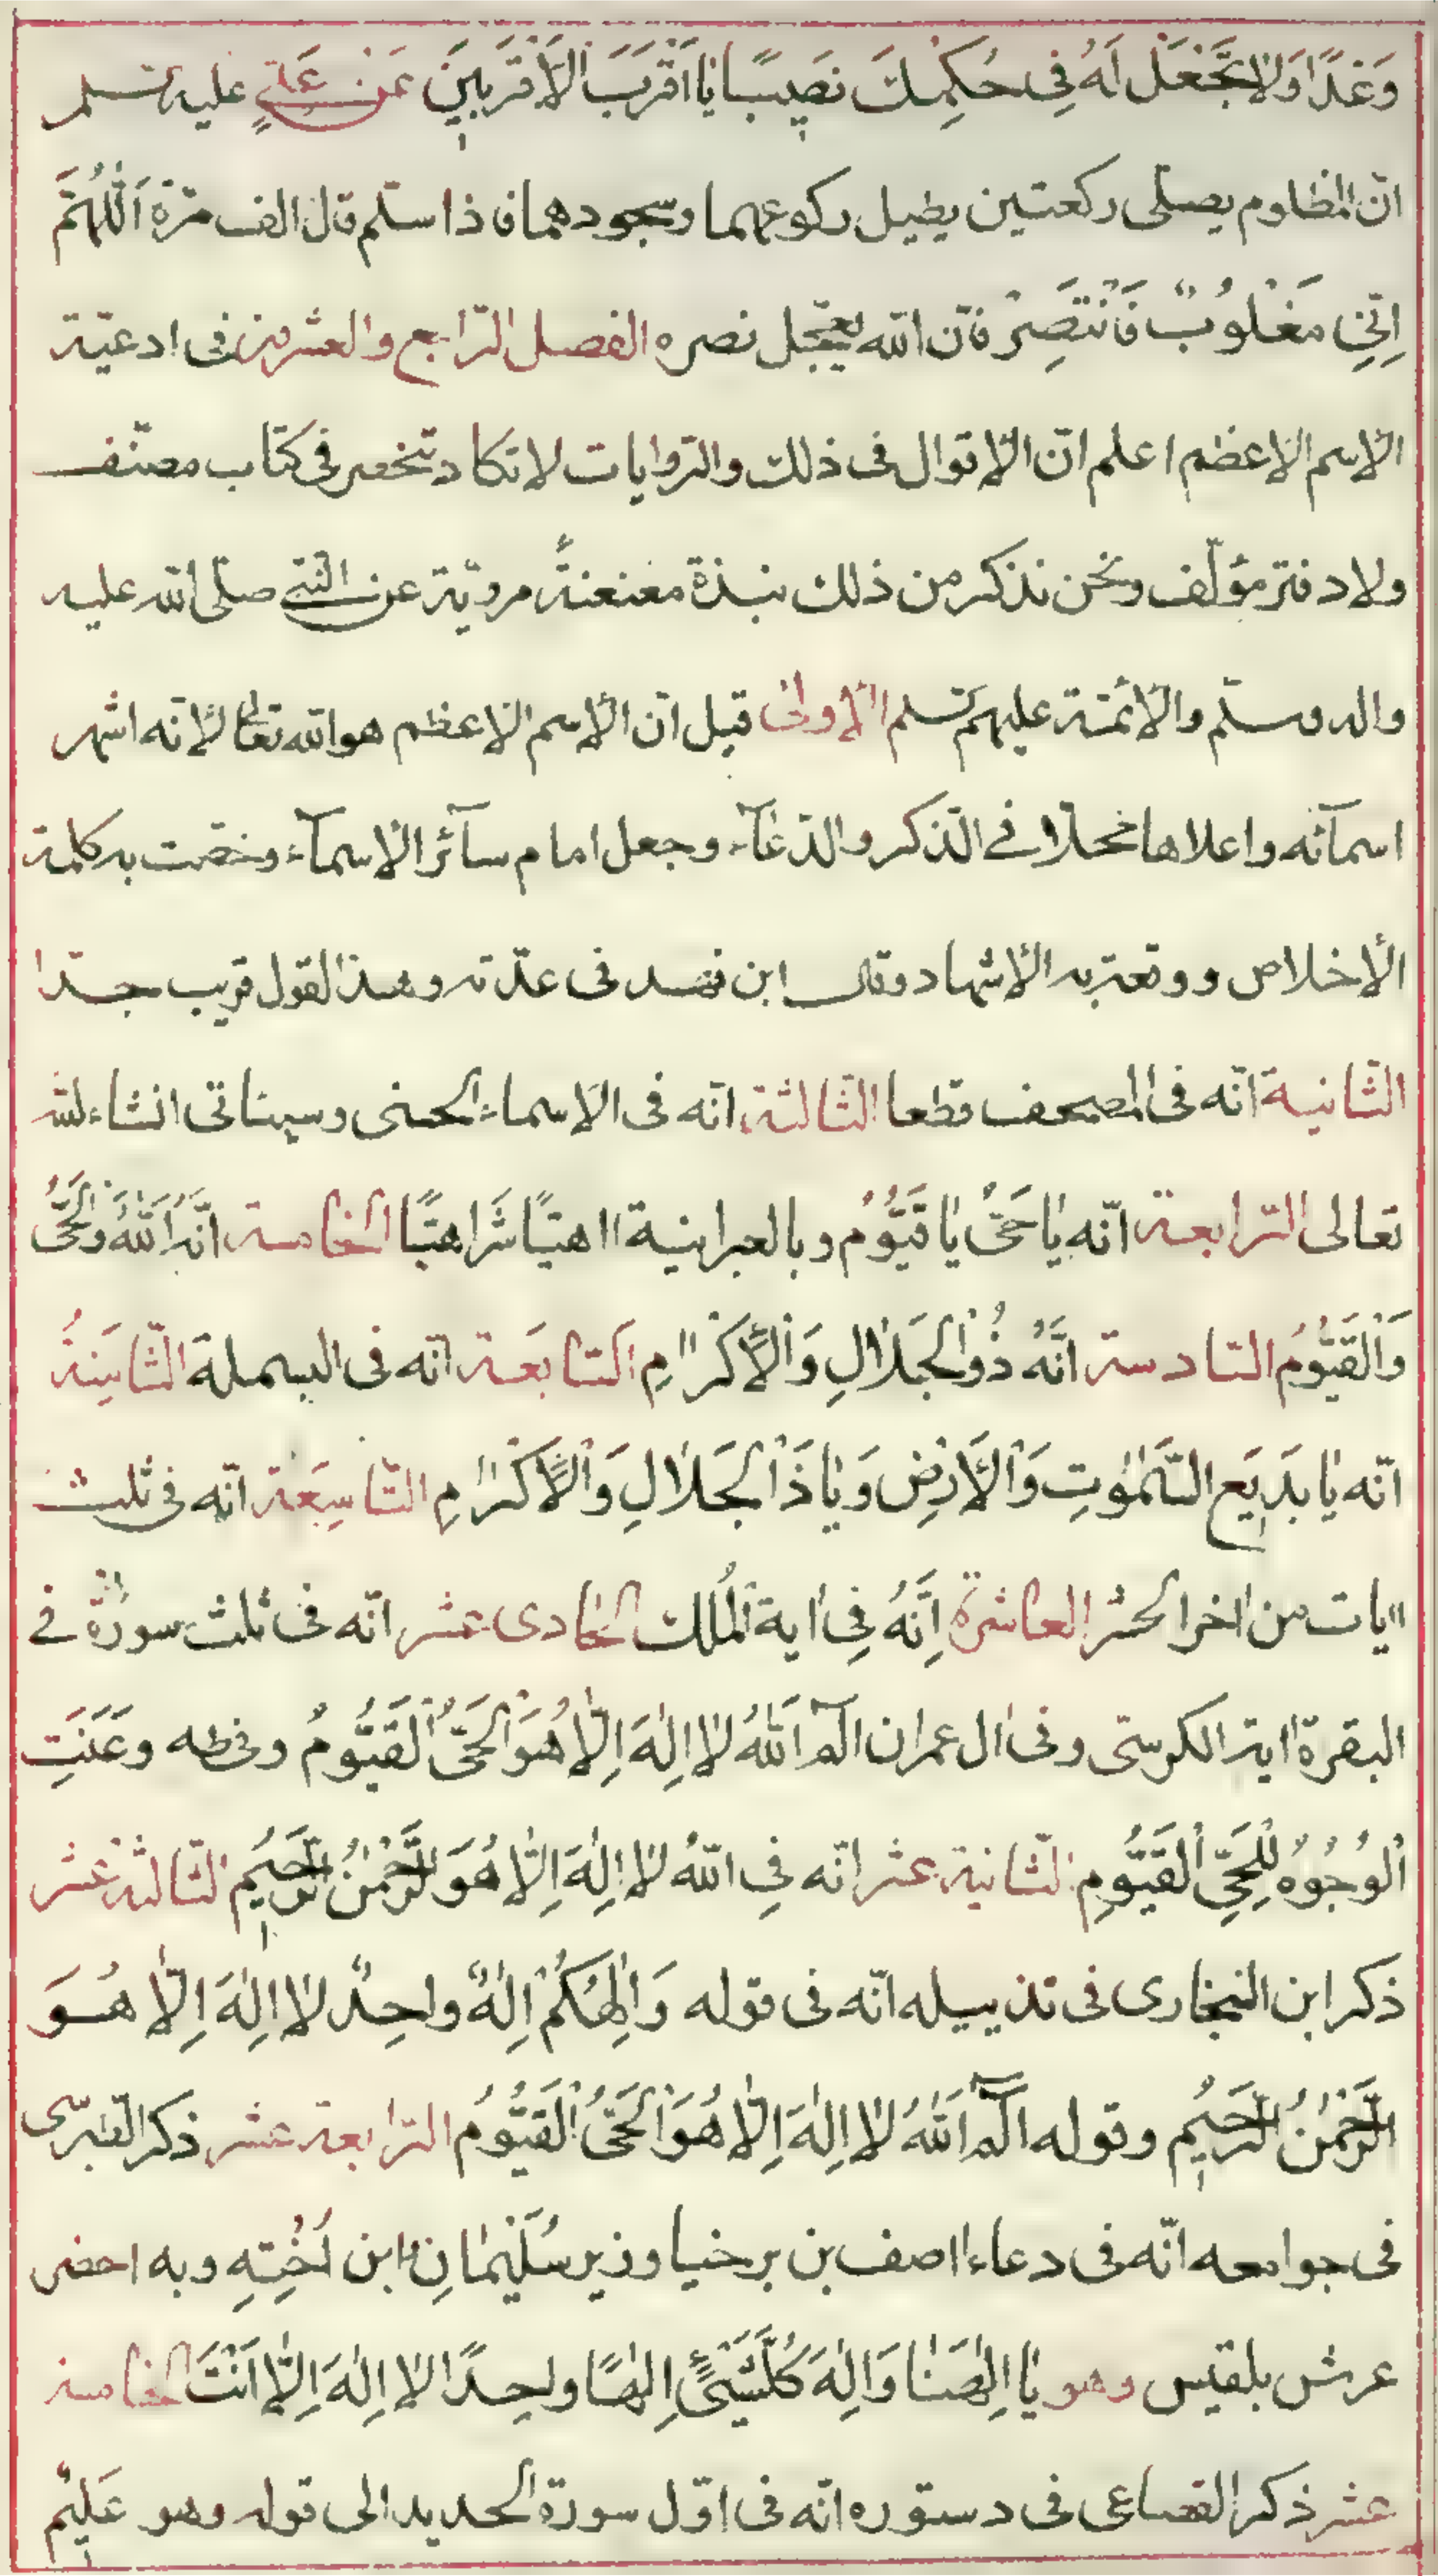 وَغَدًا وَلَا تَجْعَلْ لَهُ فِى حُكْمِكَ نَصِيبًا يَا اَقْرَبَ الْاَقْرَبِينَ عَنْ عَلِىٍّ عليه السلم
انّ المظلوم يصلّى ركعتين يطيل ركوعهما وسجودهما فاذا سلّم قال الف مرّة اَللّٰهُمَّ
اِنِّى مَغْلُوبٌ فَانْتَصِرْ فانّ الله يعجّل نصره الفصل الرّابع والعشرين فى ادعيّة
الاسم الاعظم اعلم انّ الاقوال فى ذلك والرّوايات لا تكاد تنحصر فى كتاب مصنّف
ولا دفتر مؤلّف ونحن نذكر من ذلك نبذة معنعنةً مرويّة عن النّبى صلّى الله عليه
واله وسلّم والائمّة عليهم السلم الاولى قيل انّ الاسم الاعظم هو الله تعالى لانّه اشهر
اسمآئه واعلاها محلّا فى الذّكر والدّعآء وجعل امام سآئر الاسمآء وخصّت به كلمة
الاخلاص ووقعت به الاشهاد وقال ابن فهد فى عدّته وهذا القول قريب جدّا
الثّانية انّه فى المصحف قطعا الثّالثة انّه فى الاسماء الحسنى وسيئاتى انشاء الله
تعالى الرّابعة انّه يَا حَىُّ يَا قَيُّومُ وبالعبرانية اهيًا شَراهيًا الخامسة انّه اَللّٰهُ وَالْحَىُّ
وَالْقَيُّومُ السّادسة انَّهُ ذُو الْجَلَالِ وَالْاِكْرَامِ السّابَعة انّه فى البسملة الثّامِنةُ
انّه يَا بَدِيَع السَّمٰوٰتِ وَالْاَرْضِ وَيَا ذَا الْجَلَالِ وَالْاِكْرَامِ التّاسِعَة انّه فى ثلث
ايات من اخر الحشر العاشرة اِنَّهُ فِى اية الْمُلك الحادى عشر انّه فى ثلث سورة فى
البقرة اية الكرسىّ وفى ال عمران الٓمٓ اَللّٰهُ لَا اِلٰهَ اِلَّا هُوَ الْحَىُّ الْقَيُّومُ وفى طه وعَنَتِ
الْوُجُوهُ لِلْحَىِّ الْقَيُّومِ الثّانية عشر انّه فِى اللهُ لَا اِلٰهَ اِلَّا هُوَ الرَّحْمٰنُ الرَّحِيُم الثّالثة عشر
ذكر ابن النجارى فى تذييله انّه فى قوله وَاِلٰهُكُمْ اِلٰهٌ واحِدٌ لَا اِلٰهَ اِلَّا هُوَ
الرَّحْمٰنُ الرَّحِيُم وقوله الٓمٓ اَللّٰهُ لَا اِلٰهَ اِلَّا هُوَ الْحَىُّ الْقَيُّومُ الرّابعة عشر ذكر الطّبرسى
فى جوامعه انّه فى دعاء اصف بن برخيا وزير سُلَيْمَانِ ابن اُخْتِهِ وبه احضر
عرش بلقيس وهو يَا اِلٰهَنَا وَاِلٰهَ كُلِّ شَىْءٍ اِلٰهًا واحِدًا لَا اِلٰهَ اِلَّا اَنْتَ الخامسة
عشر ذكر القضاعى فى دستوره انّه فى اوّل سورة الحديد الى قوله وهو عَلِيْمٌ